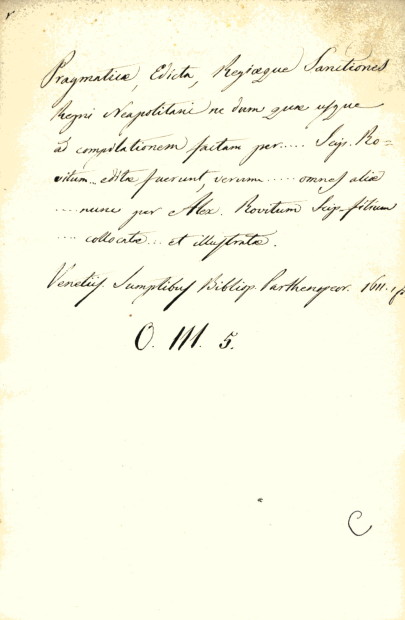 Pragmaticæ, Edicta, Regiæque Sanctiones
Regni Neapolitani ne dum quæ usque
ad compilationem factam per..... Scip. Ro=
vitum... editæ fuerunt, verum ...... omnes aliæ
..... nunc per Alex. Rovitum Scip. filium
.... collocatæ... et illustratæ.
Venetiis Sumptibus Bibliop. Parthenopeor. 1611.
O. III. 5.
C